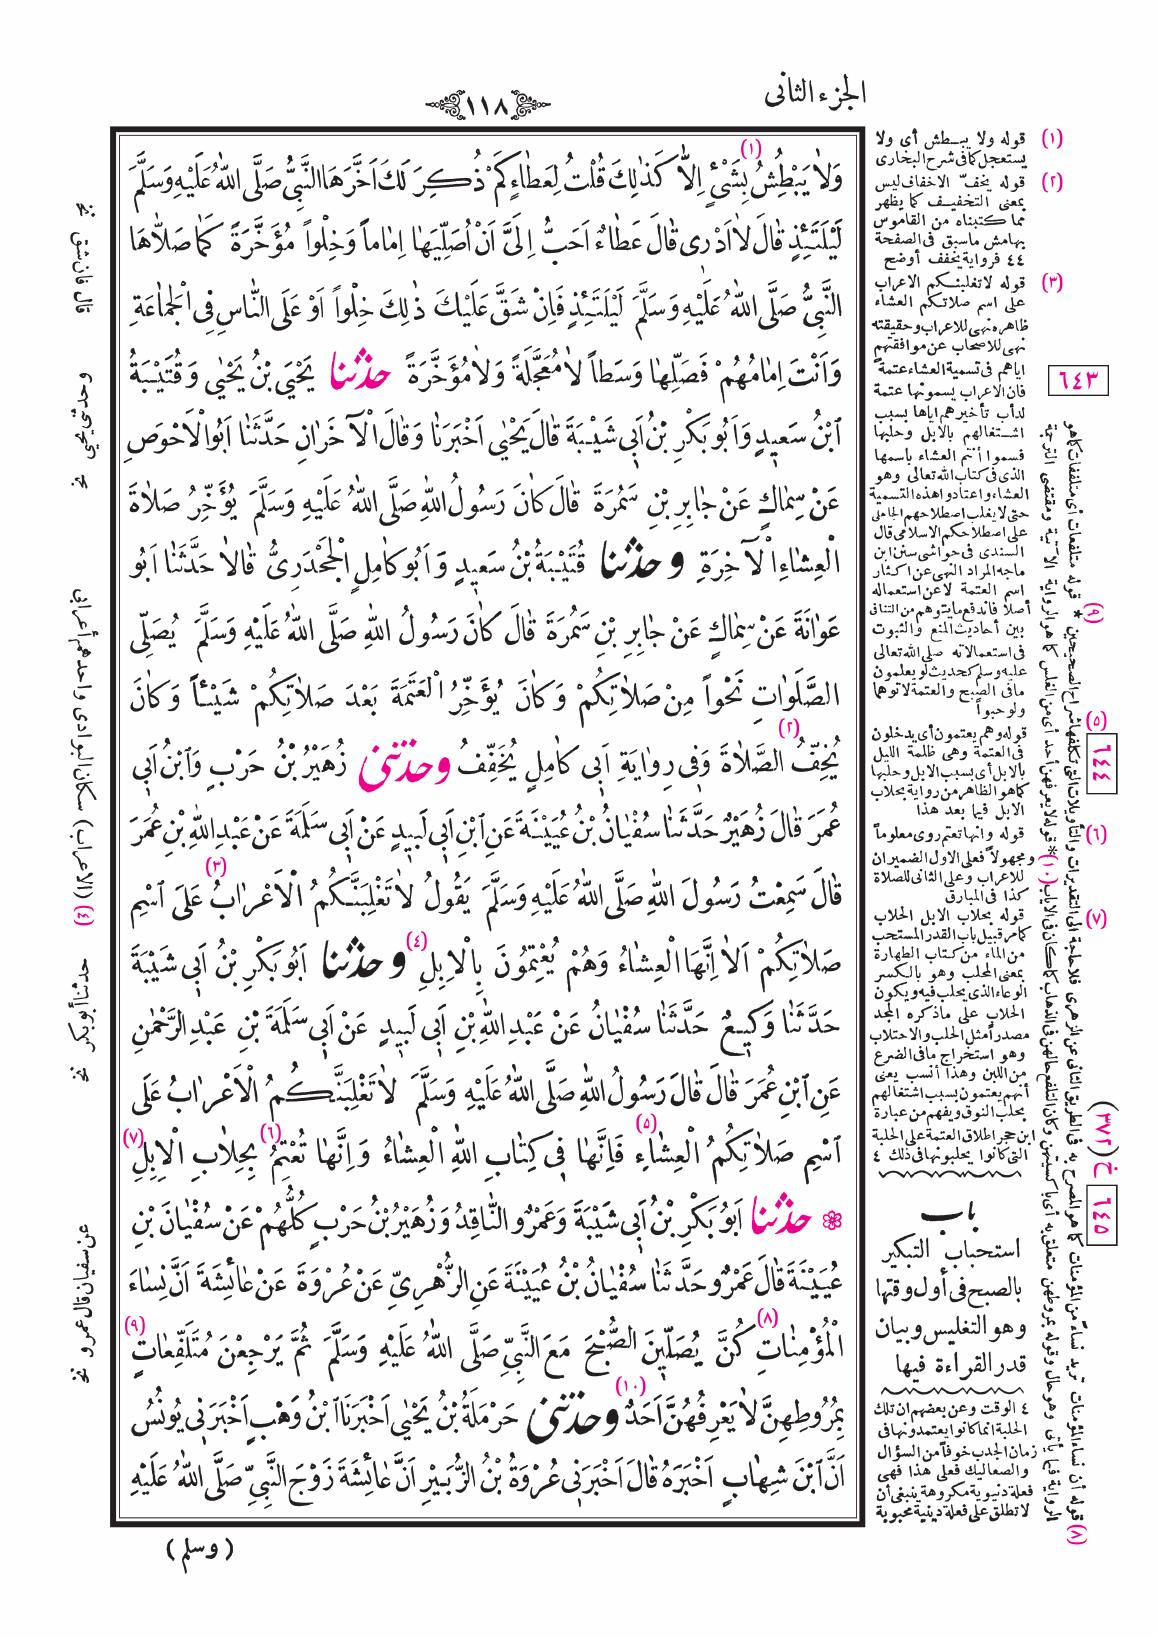 الجزء الثانى
١١٨
وَلَا يَبْطِشُ (١) بِشَىْءٍ اِلَّا كَذٰلِكَ قُلْتُ لِعَطَاءٍ كَمْ ذُكِرَ لَكَ اَخَّرَهَا النَّبِىُّ صَلَّى اللهُ عَلَيْهِ وَسَلَّمَ
لَيْلَتَئِذٍ قَالَ لَا اَدْرِى قَالَ عَطَاءٌ اَحَبُّ اِلَىَّ اَنْ اُصَلِّيَهَا اِمَاماً وَخِلْواً مُؤَخَّرَةً كَمَا صَلَّاهَا
النَّبِىُّ صَلَّى اللهُ عَلَيْهِ وَسَلَّمَ لَيْلَتَئِذٍ فَاِنْ شَقَّ عَلَيْكَ ذٰلِكَ خِلْواً اَوْ عَلَى النَّاسِ فِى الْجَمَاعَةِ
وَاَنْتَ اِمَامُهُمْ فَصَلِّهَا وَسَطاً لَا مُعَجَّلَةً وَلَا مُؤَخَّرَةً حدثنا يَحْيَى بْنُ يَحْيٰى وَقُتَيْبَةُ
ابْنُ سَعِيدٍ وَاَبُو بَكْرِ بْنُ اَبِى شَيْبَةَ قَالَ يَحْيٰى اَخْبَرَنَا وَقَالَ الْآخَرَانِ حَدَّثَنَا اَبُو الْاَحْوَصِ
عَنْ سِمَاكٍ عَنْ جَابِرِ بْنِ سَمُرَةَ قَالَ كَانَ رَسُولُ اللهِ صَلَّى اللهُ عَلَيْهِ وَسَلَّمَ يُؤَخِّرُ صَلَاةَ
الْعِشَاءِ الْآخِرَةِ وحدثنا قُتَيْبَةُ بْنُ سَعِيدٍ وَاَبُو كَامِلٍ الْجَحْدَرِىُّ قَالَا حَدَّثَنَا اَبُو
عَوَانَةَ عَنْ سِمَاكٍ عَنْ جَابِرِ بْنِ سَمُرَةَ قَالَ كَانَ رَسُولُ اللهِ صَلَّى اللهُ عَلَيْهِ وَسَلَّمَ يُصَلِّى
الصَّلَوَاتِ نَحْواً مِنْ صَلَاتِكُمْ وَكَانَ يُؤَخِّرُ الْعَتَمَةَ بَعْدَ صَلَاتِكُمْ شَيْئاً وَكَانَ
يُخِفُّ الصَّلَاةَ وَفِى رِوَايَةِ اَبِى كَامِلٍ يُخَفِّفُ (٢) وحدثنى زُهَيْرُ بْنُ حَرْبٍ وَابْنُ اَبِى
عُمَرَ قَالَ زُهَيْرٌ حَدَّثَنَا سُفْيَانُ بْنُ عُيَيْنَةَ عَنِ ابْنِ اَبِى لَبِيدٍ عَنْ اَبِى سَلَمَةَ عَنْ عَبْدِ اللهِ بْنِ عُمَرَ
قَالَ سَمِعْتُ رَسُولَ اللهِ صَلَّى اللهُ عَلَيْهِ وَسَلَّمَ يَقُولُ لَا تَغْلِبَنَّكُمُ الْاَعْرَابُ (٣) عَلَى اسْمِ
صَلَاتِكُمْ اَلَا اِنَّهَا الْعِشَاءُ وَهُمْ يُعْتِمُونَ بِالْاِبِلِ (٤) وحدثنا اَبُو بَكْرِ بْنُ اَبِى شَيْبَةَ
حَدَّثَنَا وَكِيعٌ حَدَّثَنَا سُفْيَانُ عَنْ عَبْدِ اللهِ بْنِ اَبِى لَبِيدٍ عَنْ اَبِى سَلَمَةَ بْنِ عَبْدِ الرَّحْمٰنِ
عَنِ ابْنِ عُمَرَ قَالَ قَالَ رَسُولُ اللهِ صَلَّى اللهُ عَلَيْهِ وَسَلَّمَ لَا تَغْلِبَنَّكُمُ الْاَعْرَابُ عَلَى
اسْمِ صَلَاتِكُمُ الْعِشَاءِ (٥) فَاِنَّهَا فِى كِتَابِ اللهِ الْعِشَاءُ وَاِنَّهَا تُعْتِمُ (٦) بِحِلَابِ الْاِبِلِ (٧)
حدثنا اَبُو بَكْرِ بْنُ اَبِى شَيْبَةَ وَعَمْرٌو النَّاقِدُ وَزُهَيْرُ بْنُ حَرْبٍ كُلُّهُمْ عَنْ سُفْيَانَ بْنِ
عُيَيْنَةَ قَالَ عَمْرٌو حَدَّثَنَا سُفْيَانُ بْنُ عُيَيْنَةَ عَنِ الزُّهْرِىِّ عَنْ عُرْوَةَ عَنْ عَائِشَةَ اَنَّ نِسَاءَ
الْمُؤْمِنَاتِ (٨) كُنَّ يُصَلِّينَ الصُّبْحَ مَعَ النَّبِىِّ صَلَّى اللهُ عَلَيْهِ وَسَلَّمَ ثُمَّ يَرْجِعْنَ مُتَلَفِّعَاتٍ (٩)
بِمُرُوطِهِنَّ لَا يَعْرِفُهُنَّ اَحَدٌ (١٠) وحدثنى حَرْمَلَةُ بْنُ يَحْيٰى اَخْبَرَنَا ابْنُ وَهْبٍ اَخْبَرَنِى يُونُسُ
اَنَّ ابْنَ شِهَابٍ اَخْبَرَهُ قَالَ اَخْبَرَنِى عُرْوَةُ بْنُ الزُّبَيْرِ اَنَّ عَائِشَةَ زَوْجَ النَّبِىِّ صَلَّى اللهُ عَلَيْهِ
( وسلم )
(١) قوله ولا يبطش أى ولا
يستعجل كما فى شرح البخارى
(٢) قوله يخفّ الاخفاف ليس
بمعنى التخفيف كما يظهر
مما كتبناه من القاموس
بهامش ماسبق فى الصفحة
٤٤ فرواية يخفف أوضح
(٣) قوله لا تغلبنكم الاعراب
على اسم صلاتكم العشاء
ظاهره نهى للاعراب وحقيقته
نهى للاصحاب عن موافقتهم
اياهم فى تسمية العشاء عتمةً
فان الاعراب يسمونها عتمة
لدأب تأخيرهم اياها بسبب
اشتغالهم بالابل وحلبها
فسموا أنتم العشاء باسمها
الذى فى كتاب الله تعالى وهو
العشاء واعتادوا هذه التسمية
حتى لا يغلب اصطلاحهم الجاهلى
على اصطلاحكم الاسلامى قال
السندى فى حواشى سنن ابن
ماجه المراد النهى عن اكثار
اسم العتمة لا عن استعماله
أصلا فاندفع مايتوهم من التنافى
بين أحاديث المنع والثبوت
فى استعمالاته صلى الله تعالى
عليه وسلم كحديث لو يعلمون
مافى الصبح والعتمة لاتوهما
ولو حبواً
قوله وهم يعتمون أى يدخلون
فى العتمة وهى ظلمة الليل
بالابل أى بسبب الابل وحلبها
كما هو الظاهر من رواية بحلاب
الابل فيما بعد هذا
(٥)
(٦) قوله وانها تعتم روى معلوماً
ومجهولاً فعلى الاول الضمير ان
للاعراب وعلى الثانى للصلاة
كذا فى المبارق
(٧) قوله بحلاب الابل الحلاب
كما مر قبيل باب القدر المستحب
من الماء من كتاب الطهارة
بمعنى المحلب وهو بالكسر
الوعاء الذى يحلب فيه ويكون
الحلاب على ماذكره المجد
مصدراً مثل الحلب والاحتلاب
وهو استخراج مافى الضرع
من اللبن وهذا أنسب يعنى
أنهم يعتمون بسبب اشتغالهم
بحلب النوق ويفهم من عبارة
ابن حجر اطلاق العتمة على الحلبة
التى كانوا يحلبونها فى ذلك ٤
باب
استحباب التبكير
بالصبح فى أول وقتها
وهو التغليس وبيان
قدر القراءة فيها
٤ الوقت وعن بعضهم ان تلك
الحلبة انما كانوا يعتمدونها فى
زمان الجدب خوفاً من السؤال
والصعاليك فعلى هذا فهى
فعلة دنيوية مكروهة ينبغى أن
لا تطلق على فعلة دينية محبوبة
٦٤٣
٦٤٤
خ (٣٧٢)
٦٤٥
(٨) قوله أن نساء المؤمنات
(٩) قوله متلفعات أى متلففات كما هو
(١٠) قوله لا يعرفهن أحد أى من الغلس كما هو الرواية الآتية ومقتضى الترجمة
قال فان شق نخ
وحدثنى يحيى نخ
(٤) (الاعراب) سكان البوادى واحدهم أعرابى
حدثنا أبو بكر نخ
عن سفيان قال عمرو نخ